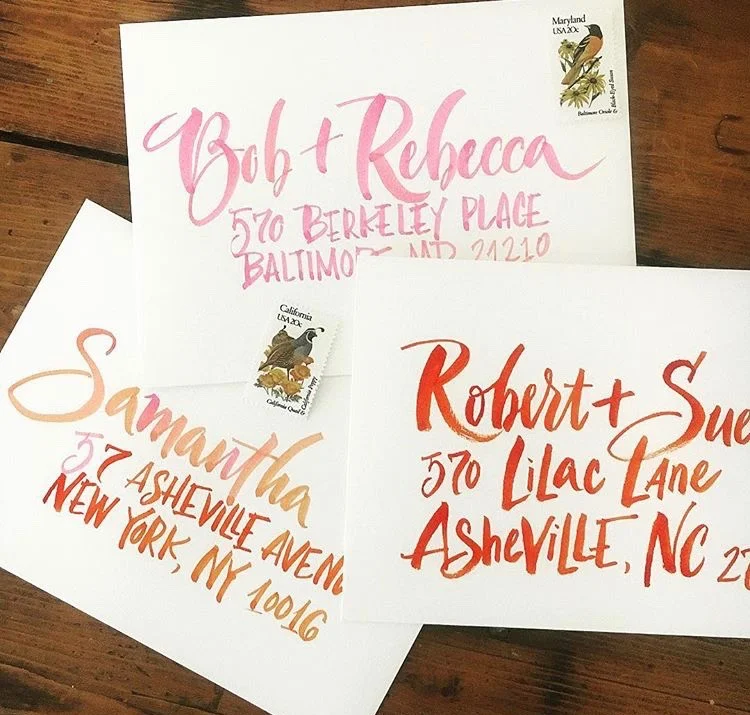 Maryland
USA 20c
Black-Eyed Susan
Baltimore Oriole &
Bob + Rebecca
570 BERKELEY PLACE
BALTIMO MD 21210
California
USA 20c
California Quail &
California Poppy
Samantha
57 ASHEVILLE AVENU
NEW YORK, NY 10016
Robert + Sue
570 LiLac Lane
AsheviLLE, NC 27